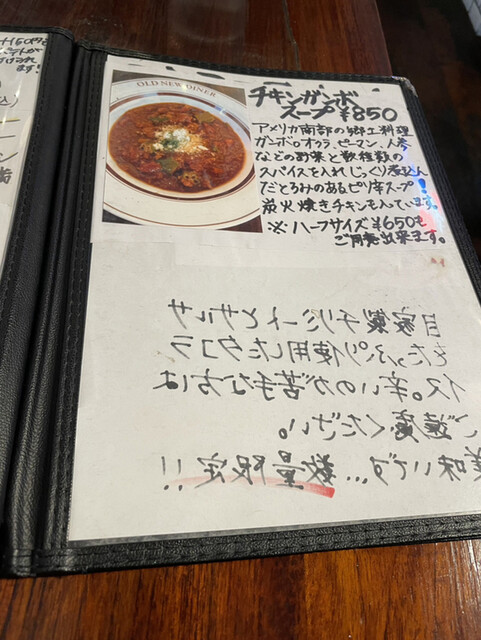 OLD NEW DINER
チキンガンボ
スープ ¥850
アメリカ南部の郷土料理
ガンボ。オクラ、ピーマン、人参
などのお野菜と数種類の
スパイスを入れじっくり煮込ん
だとろみのあるピリ辛スープ!
炭火焼きチキンも入っています。
※ハーフサイズ¥650も
ご用意出来ます。
自家製チリミートとサルサ
をたっぷり使用したタコラ
イス。辛いのが苦手な方は
ご遠慮ください。
美味いです…数量限定!!